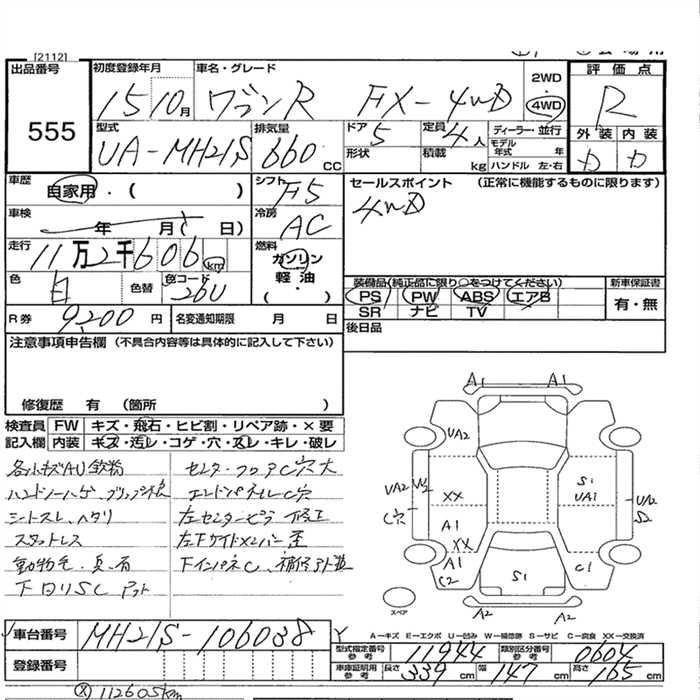 [2112]
出品番号
555
初度登録年月
15 10月
車名・グレード
ワゴンR FX-4WD
2WD
4WD
評価点
R
外装 内装
カ カ
型式
UA-MH21S
排気量
660 CC
ドア 5
形状
定員 4人
積載 kg
ディーラー・並行
モデル年式 年
ハンドル 左・右
車歴
自家用・( )
シフト F5
セールスポイント (正常に機能するものに限ります)
4WD
車検
年 月( 日)
冷房 AC
走行
11万2千606km
燃料
ガソリン
軽油
( ・ )
色 白
色替
色コード 26U
装備品(純正品に限り○をつけてください)
PS PW ABS エアB
SR ナビ TV
新車保証書
有・無
R券 9,200円
名変通知期限 月 日
後日品
注意事項申告欄(不具合内容等は具体的に記入して下さい)
修復歴 有 (箇所 )
検査員記入欄
FW キズ・飛石・ヒビ割・リペア跡・×要
内装 キズ・汚レ・コゲ・穴・スレ・キレ・破レ
各小キズAU鈑粉
センターフロアC穴大
エンドパネルC穴
シートスレ、ヘタリ
左センターピラー修正
スタットレス
左Fサイドメンバー歪
動物毛・臭・有
下インパネC、補修下塗
下回りSC
A1 A1
UA2
UA2
XX
C穴
A1
XX
A1
C2
S1
UA1
UA2
S2
C1
S1
A2 A2
スペア
A-キズ E-エクボ U-凹み W-補修跡 S-サビ C-腐食 XX-交換済
車台番号 MH21S-106038
登録番号
型式指定番号 参考 11944
類別区分番号 参考 0604
車庫証明用 参考 長さ 339cm 幅 147cm 高さ 165cm
Ⓧ 112605km